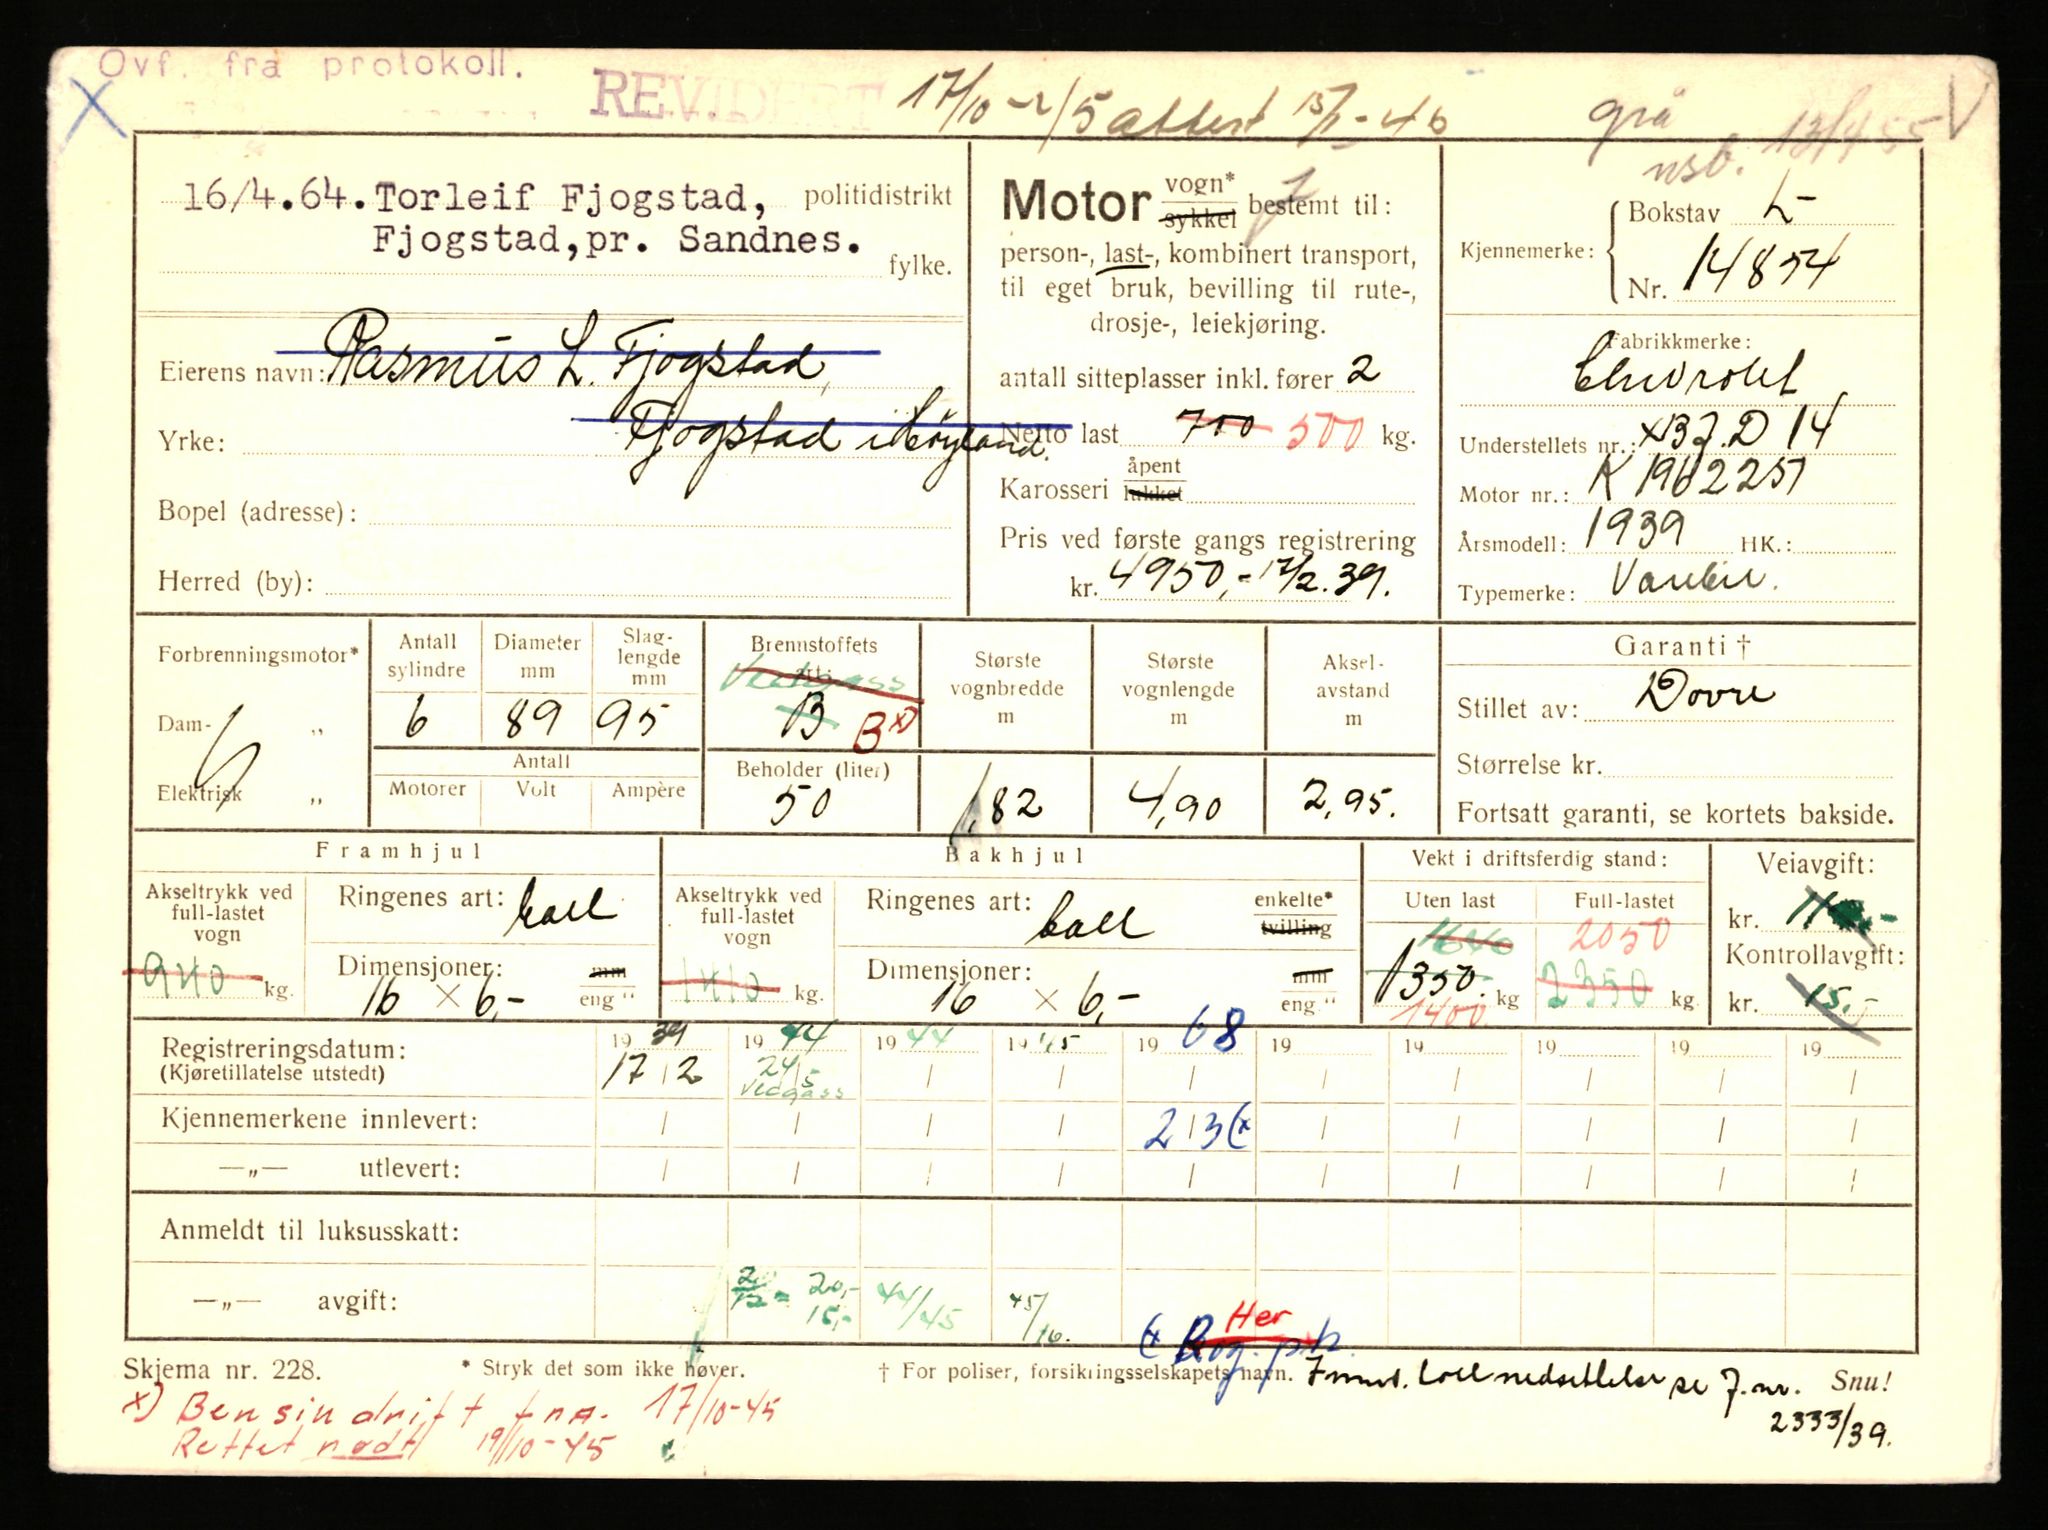 Ovf. fra protokoll.
REVIDERT 17/10 - 2/5 attest 15/1-46
grå
nsb. 13/4 55
16/4.64. Torleif Fjogstad, politidistrikt
Fjogstad, pr. Sandnes.
fylke.
Eierens navn: Rasmus L. Fjogstad,
Fjogstad i Høyland.
Yrke:
Bopel (adresse):
Herred (by):
Motor vogn* sykkel bestemt til:
person-, last-, kombinert transport,
til eget bruk, bevilling til rute-,
drosje-, leiekjøring.
antall sitteplasser inkl. fører 2
Netto last 700 500 kg.
Karosseri åpent lukket
Pris ved første gangs registrering
kr. 4950,- 17/2.39.
Kjennemerke: Bokstav L-
Nr. 14854
Fabrikkmerke:
Chevrolet
Understellets nr.: x13 7.D 14
Motor nr.: K 1962251
Årsmodell: 1939 HK.:
Typemerke: Varebil.
Forbrenningsmotor*
Dam- „
Elektrisk „
Antall sylindre 6
Diameter mm 89
Slag-lengde mm 95
Antall
Motorer Volt Ampère
Brennstoffets art: Vedgass
B Bx)
Beholder (liter) 50
Største vognbredde m 1,82
Største vognlengde m 4,90
Aksel-avstand m 2,95.
Garanti †
Stillet av: Dovre
Størrelse kr.
Fortsatt garanti, se kortets bakside.
Framhjul
Akseltrykk ved full-lastet vogn 940 kg.
Ringenes art: ball
Dimensjoner: 16 x 6,- mm eng "
Bakhjul
Akseltrykk ved full-lastet vogn 1410 kg.
Ringenes art: ball enkelte* tvilling
Dimensjoner: 16 x 6,- mm eng "
Vekt i driftsferdig stand:
Uten last 1640 1350. kg 1400
Full-lastet 2050 2350 kg.
Veiavgift:
kr.
Kontrollavgift:
kr. 15,-
Registreringsdatum: 19 39 19 44 19 44 19 45 19 68 19 19 19 19 19
(Kjøretillatelse utstedt) 17/2 24/5 Vedgass
Kjennemerkene innlevert: 2/3 (x
—„— utlevert:
Anmeldt til luksusskatt:
—„— avgift: 20/12 = 20,- 15,- 44/45 45/46.
(x Rog. p.k. Her
Skjema nr. 228. * Stryk det som ikke høver. † For poliser, forsikringsselskapets navn. Snu!
toll nedsettelse se J.nr.
2333/39.
x) Bensindrift fra 17/10-45
Rettet nødt 19/10-45